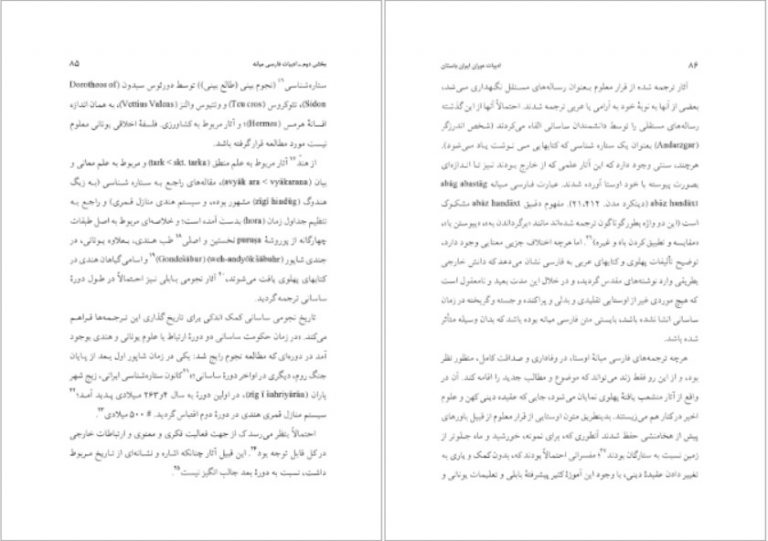 بخش دوم ــ ادبیات فارسی میانه ۸۵
ستاره‌شناسی (نجوم بینی (طالع بینی)) توسط دورتوس سیدون (Dorotheos of
Sidon)، تئوکروس (Teu cros) و وتتیوس والنز (Vettius Valens)، به همان اندازه
افسانهٔ هرمس (Hermes)؛ و آثار مربوط به کشاورزی. فلسفهٔ اخلاقی یونانی معلوم
نیست مورد مطالعه قرار گرفته باشد.
از هند آثار مربوط به علم منطق (tark < skt. tarka) و مربوط به علم معانی و
بیان (avyāk ara < vyākarana)، مقاله‌های راجع به ستاره شناسی (به زیگ
هندوگ (zīgī hindūg) مشهور بوده، و سیستم هندی منازل قمری) و راجع به
تنظیم جداول زمان (hora) بدست آمده است؛ و خلاصه‌ای مربوط به اصل طبقات
چهارگانه از پوروشهٔ puruṣa نخستین و اصلی طب هندی، بعلاوه یونانی، در
جندی شاپور (Gondešābur) (weh-andyōk šābuhr) و اسامی گیاهان هندی در
کتابهای پهلوی یافت می‌شوند، آثار نجومی بابلی نیز احتمالاً در طول دورهٔ
ساسانی ترجمه گردید.
تاریخ نجومی ساسانی کمک اندکی برای تاریخ‌گذاری این ترجمه‌ها فراهم
می‌کند. «در زمان حکومت ساسانی دو دورهٔ ارتباط با علوم یونانی و هندی بوجود
آمد در دوره‌ای که مطالعه نجوم رایج شد: یکی در زمان شاپور اول بعد از پایان
جنگ روم، دیگری در اواخر دورهٔ ساسانی؛» کانون ستاره‌شناسی ایرانی، زیج شهر
یاران (zīg ī šahriyārān)، در اولین دورهٔ به سال ۴ر۲۶۳ میلادی پدید آمد؛
سیستم منازل قمری هندی در دورهٔ دوم اقتباس گردید. # ۵۰۰ میلادی
احتمالاً بنظر می‌رسد که از جهت فعالیت فکری و معنوی و ارتباطات خارجی
در کل قابل توجه بود این قبیل آثار چنانکه اشاره و نشانه‌ای از تاریخ مربوط
داشت، نسبت به دورهٔ بعد جالب انگیز نیست
۸۶ ادبیات دوران ایران باستان
آثار ترجمه شده از قرار معلوم بعنوان رساله‌های مستقل نگهداری می‌شد،
بعضی از آنها به نوبهٔ خود به آرامی یا عربی ترجمه شدند. احتمالاً آنها از این گذشته
رساله‌های مستقلی را توسط دانشمندان ساسانی القاء می‌کردند (شخص اندرزگر
(Andarzgar) بعنوان یک ستاره شناسی که کتابهایی می نوشت یاد می‌شود).
هرچند، سنتی وجود دارد که این آثار علمی که از خارج بودند نیز تا اندازه‌ای
بصورت پیوسته با خود اوستا آورده شدند. عبارت فارسی میانه abāg abastāg
abāz handāxt (دینکرد مدن، ۲۱،۴۱۲). مفهوم دقیق abāz handāxt مشکوک
است (این دو واژه بطور گوناگون ترجمه شده‌اند مانند «برگرداندن به»، «پیوستن با»،
«مقایسه و تطبیق کردن با» و غیره) اما هرچه اختلاف جزیی معنایی وجود دارد،
توضیح تألیفات پهلوی و کتابهای عربی به فارسی نشان می‌دهد که دانش خارجی
بطریقی وارد نوشته‌های مقدس گردید، و در خلال این مدت بعید و نامعقول است
که هیچ موردی غیر از اوستایی تقلیدی و بدلی و پراکنده و جسته و گریخته در زمان
ساسانی انشا نشده باشد، بایستی متن فارسی میانه بوده باشد که بدان وسیله متأثر
شده باشد.
هرچه ترجمه‌های فارسی میانهٔ اوستا، در وفاداری و صداقت کامل، منظور نظر
بود، و از این رو فقط زند می‌تواند که موضوع و مطالب جدید را اقامه کند. آن در
واقع از آثار منشعب یافتهٔ پهلوی نمایان می‌شود، جایی که عقیده دینی کهن و علوم
اخیر در کنار هم می‌زیستند. بدینطریق متون اوستایی از قرار معلوم از قبیل باورهای
پیش از هخامنشی حفظ شدند آنطوری که، برای نمونه، خورشید و ماه جلوتر از
زمین نسبت به ستارگان بودند؛ مفسرانی احتمالاً بودند که، بدون کمک و یاری به
تغییر دادن عقیدهٔ دینی، با وجود این آموزهٔ کثیر پیشرفتهٔ بابلی و تعلیمات یونانی و